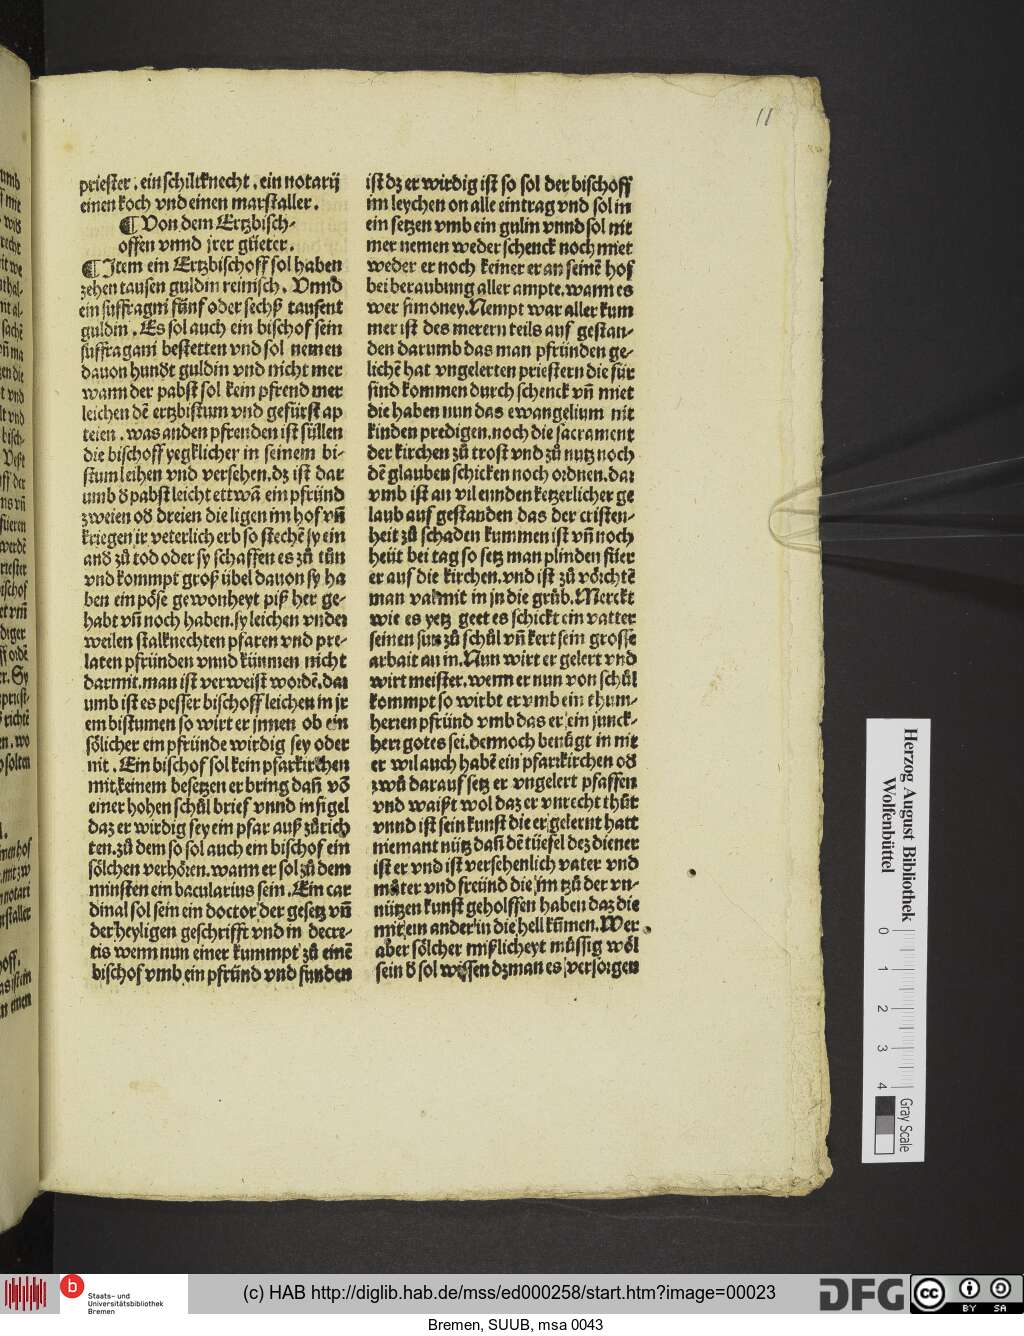 11
priester. ein schiltknecht. ein notarÿ
einen koch vnd einen marstaller.
¶ Von dem Ertzbisch-
offen vnnd jrer gůeter.
¶ Jtem ein Ertzbischoff sol haben
zehen tausen guldin reinisch. Vnnd
ein suffragni fünf oder sechß tausent
guldin. Es sol auch ein bischof sein
suffragani bestetten vnd sol nemen
dauon hundt guldin vnd nicht mer
wann der pabst sol kein pfrend mer
leichen dē ertzbistum vnd gefürst ap
teien. was anden pfrenden ist süllen
die bischoff yegklicher in seinem bi-
stum leihen vnd versehen. dz ist dar
umb d pabst leicht ettwā ein pfründ
zweien od dreien die ligen im hof vñ
kriegen ir veterlich erb so stechē sy ein
and zů tod oder sy schaffen es zů tůn
vnd kompt groß übel dauon sy ha
ben ein pöse gewonheyt piß her ge-
habt vñ noch haben. sy leichen vnder
weilen stalknechten pfaren vnd pre-
laten pfründen vnnd künnen nicht
darmit. man ist verweist wordē. dar
umb ist es pesser bischoff leichen in jr
em bistumen so wirt er jnnen ob ein
sölicher ein pfründe wirdig sey oder
nit. Ein bischof sol kein pfarkirchen
mit keinem besetzen er bring dañ vō
einer hohen schůl brief vnnd insigel
daz er wirdig sey ein pfar auß zůrich
ten. zů dem so sol auch ein bischof ein
sölchen verhören. wann er sol zů dem
minsten ein bacularius sein. Ein car
dinal sol sein ein doctor der gesetz vñ
der heyligen geschrifft vnd in decre-
tis wenn nun einer kummpt zů einē
bischof vmb ein pfründ vnd funden
ist dz er wirdig ist so sol der bischoff
im leychen on alle eintrag vnd sol in
ein setzen vmb ein gulin vnnd sol nit
mer nemen weder schenck noch miet
weder er noch keiner er an seinē hof
bei beraubung aller ampte. wann es
wer simoney. Nempt war aller kum
mer ist des merern teils auf gestan-
den darumb das man pfründen ge-
lichē hat vngelerten priestern die für
sind kommen durch schenck vñ miet
die haben nun das ewangelium nit
kinden predigen. noch die sacrament
der kirchen zů trost vnd zů nutz noch
dē glauben schicken noch ordnen. dar
vmb ist an vil ennden ketzerlicher ge
laub auf gestanden das der cristen-
heit zů schaden kummen ist vñ noch
heüt bei tag so setz man plinden fiier
er auf die kirchen. vnd ist zů vörchtē
man val mit in jn die grůb. Merckt
wie es yetz geet es schickt ein vatter
seinen sun zů schůl vñ kert sein grosse
arbait an in. Nun wirt er gelert vnd
wirt meister. wenn er nun von schůl
kommpt so wirbt er vmb ein thum-
herren pfründ vmb das er ein junck-
herr gotes sei. dennoch benügt in nit
er wil auch habē ein pfarrkirchen od
zwů darauf setz er vngelert pfaffen
vnd waißt wol daz er vnrecht thůt
vnnd ist sein kunst die er gelernt hatt
niemant nütz dañ dē tüefel dez diener
ist er vnd ist versehenlich vater vnd
můter vnd freünd die im tzů der vn-
nützen kunst geholffen haben daz die
mit ein ander in die hell kůmen. Wer
aber sölcher mißlicheyt müssig wöl
sein d sol wissen dz man es versorgen
Herzog August Bibliothek
Wolfenbüttel
0 1 2 3 4
Gray Scale
b
Staats- und
Universitätsbibliothek
Bremen
(c) HAB http://diglib.hab.de/mss/ed000258/start.htm?image=00023
DFG
cc
BY SA
Bremen, SUUB, msa 0043